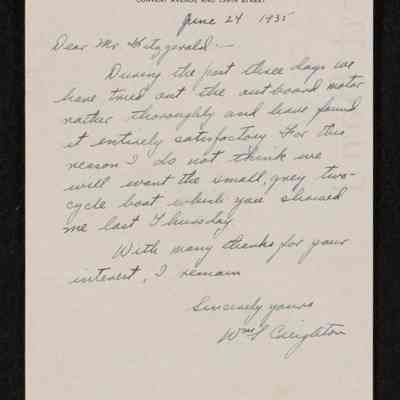 CONVENT AVENUE AND 139TH STREET
June 24 1935
Dear Mr Fitzgerald:—
During the past three days we
have tried out the outboard motor
rather thoroughly and have found
it entirely satisfactory. For this
reason I do not think we
will want the small, grey two-
cycle boat which you showed
me last Thursday.
With many thanks for your
interest, I remain
Sincerely yours
Wm S Creighton